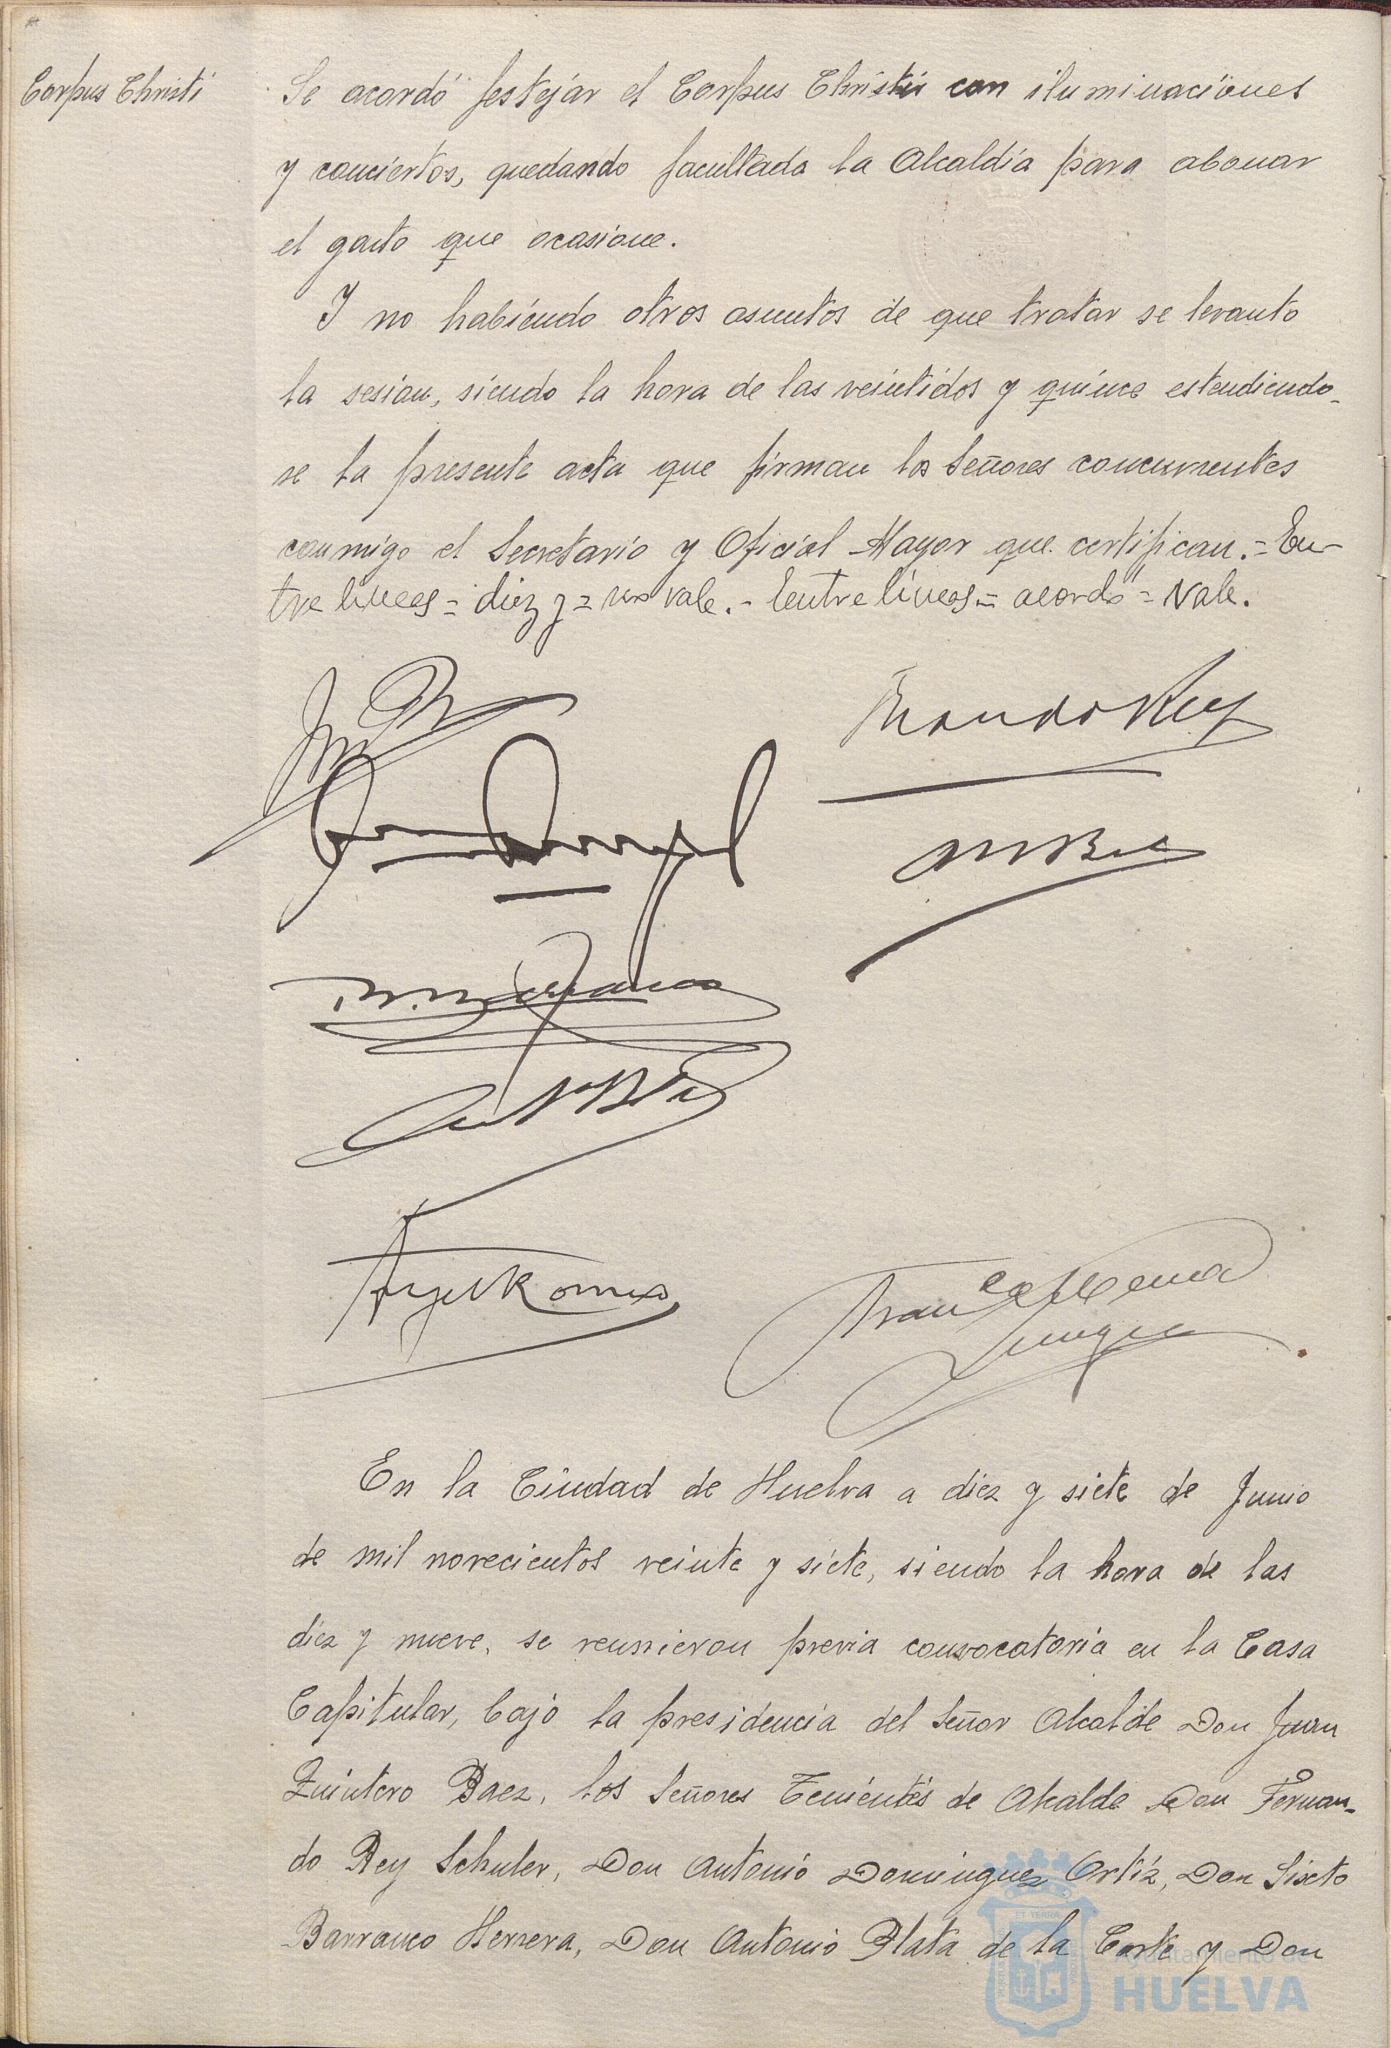 Corpus Christi
Se acordó festejar el Corpus Christi con iluminaciones
y conciertos, quedando facultada la Alcaldia para abonar
el gasto que ocasione.
Y no habiendo otros asuntos de que tratar se levanto
la sesion, siendo la hora de las veintidos y quince estendiendo-
se la presente acta que firman los Señores concurrentes
conmigo el Secretario y Oficial Mayor que certifican.=En-
tre lineas= diez y= no vale.- Entre lineas= acordó= Vale.
En la Ciudad de Huelva a diez y siete de Junio
de mil novecientos veinte y siete, siendo la hora de las
diez y nueve, se reunieron previa convocatoria en la Casa
Capitular, bajo la presidencia del Señor Alcalde Don Juan
Quintero Baez, los Señores Tenientes de Alcalde Don Fernan-
do Rey Schuler, Don Antonio Dominguez Ortiz, Don Sixto
Barranco Herrera, Don Antonio Plata de la Corte y Don
Ayuntamiento de
HUELVA